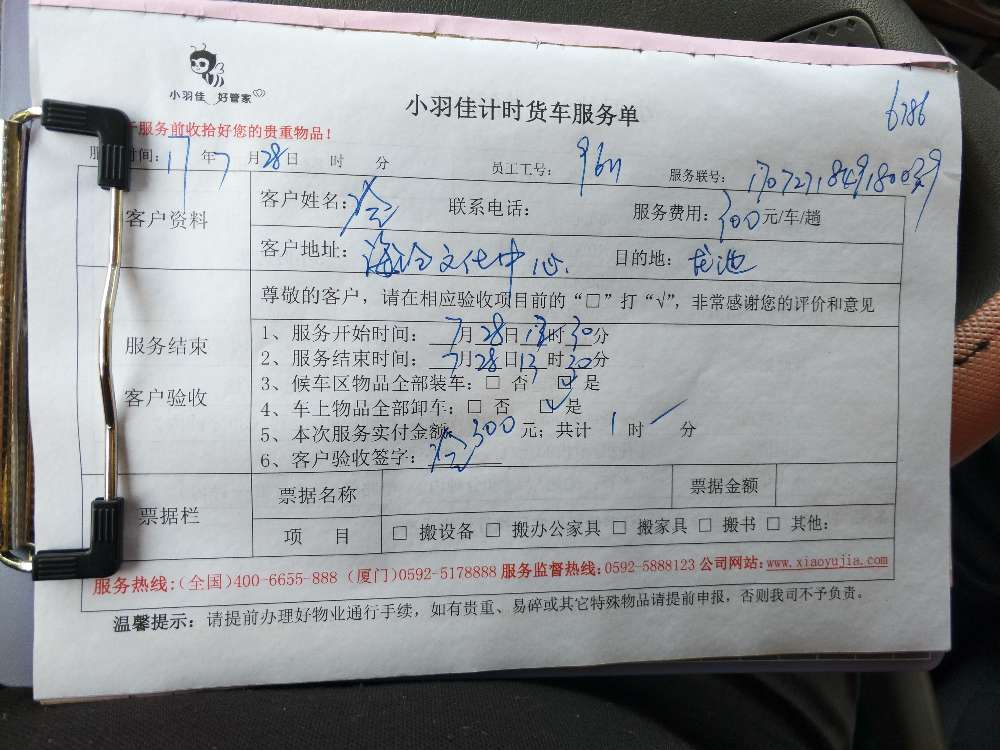 小羽佳 好管家
小羽佳计时货车服务单
6786
服务前收拾好您的贵重物品！
时间：17年7月28日 时 分 员工工号： 服务联号：
客户资料
客户姓名： 联系电话： 服务费用：300元/车/趟
客户地址：海沧文化中心 目的地：龙池
服务结束
客户验收
尊敬的客户，请在相应验收项目前的“□”打“√”，非常感谢您的评价和意见
1、服务开始时间：7月28日12时30分
2、服务结束时间：7月28日13时30分
3、候车区物品全部装车：□ 否 ☑ 是
4、车上物品全部卸车：□ 否 ☑ 是
5、本次服务实付金额：300元；共计 1 时 分
6、客户验收签字：
票据栏
票据名称 票据金额
项 目 □ 搬设备 □ 搬办公家具 □ 搬家具 □ 搬书 □ 其他:
服务热线:(全国)400-6655-888 (厦门)0592-5178888 服务监督热线:0592-5888123 公司网站:www.xiaoyujia.com
温馨提示：请提前办理好物业通行手续，如有贵重、易碎或其它特殊物品请提前申报，否则我司不予负责。